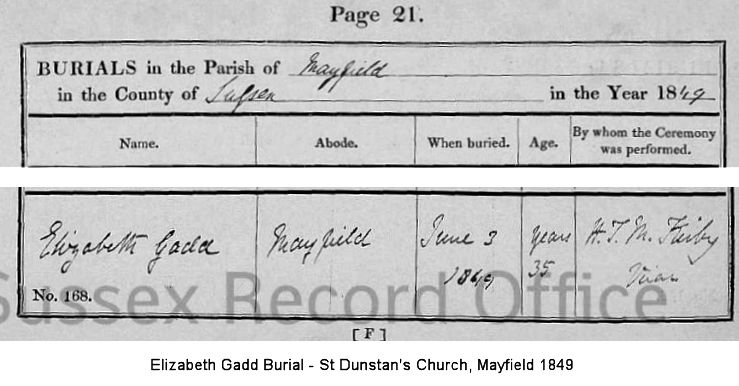 Page 21.
BURIALS in the Parish of Mayfield
in the County of Sussex in the Year 1849
Name. Abode. When buried. Age. By whom the Ceremony was performed.
Elizabeth Gadd Mayfield June 3 years H. T. M. Kirby
1849 35 Vicar
No. 168.
Sussex Record Office
[ F ]
Elizabeth Gadd Burial - St Dunstan's Church, Mayfield 1849